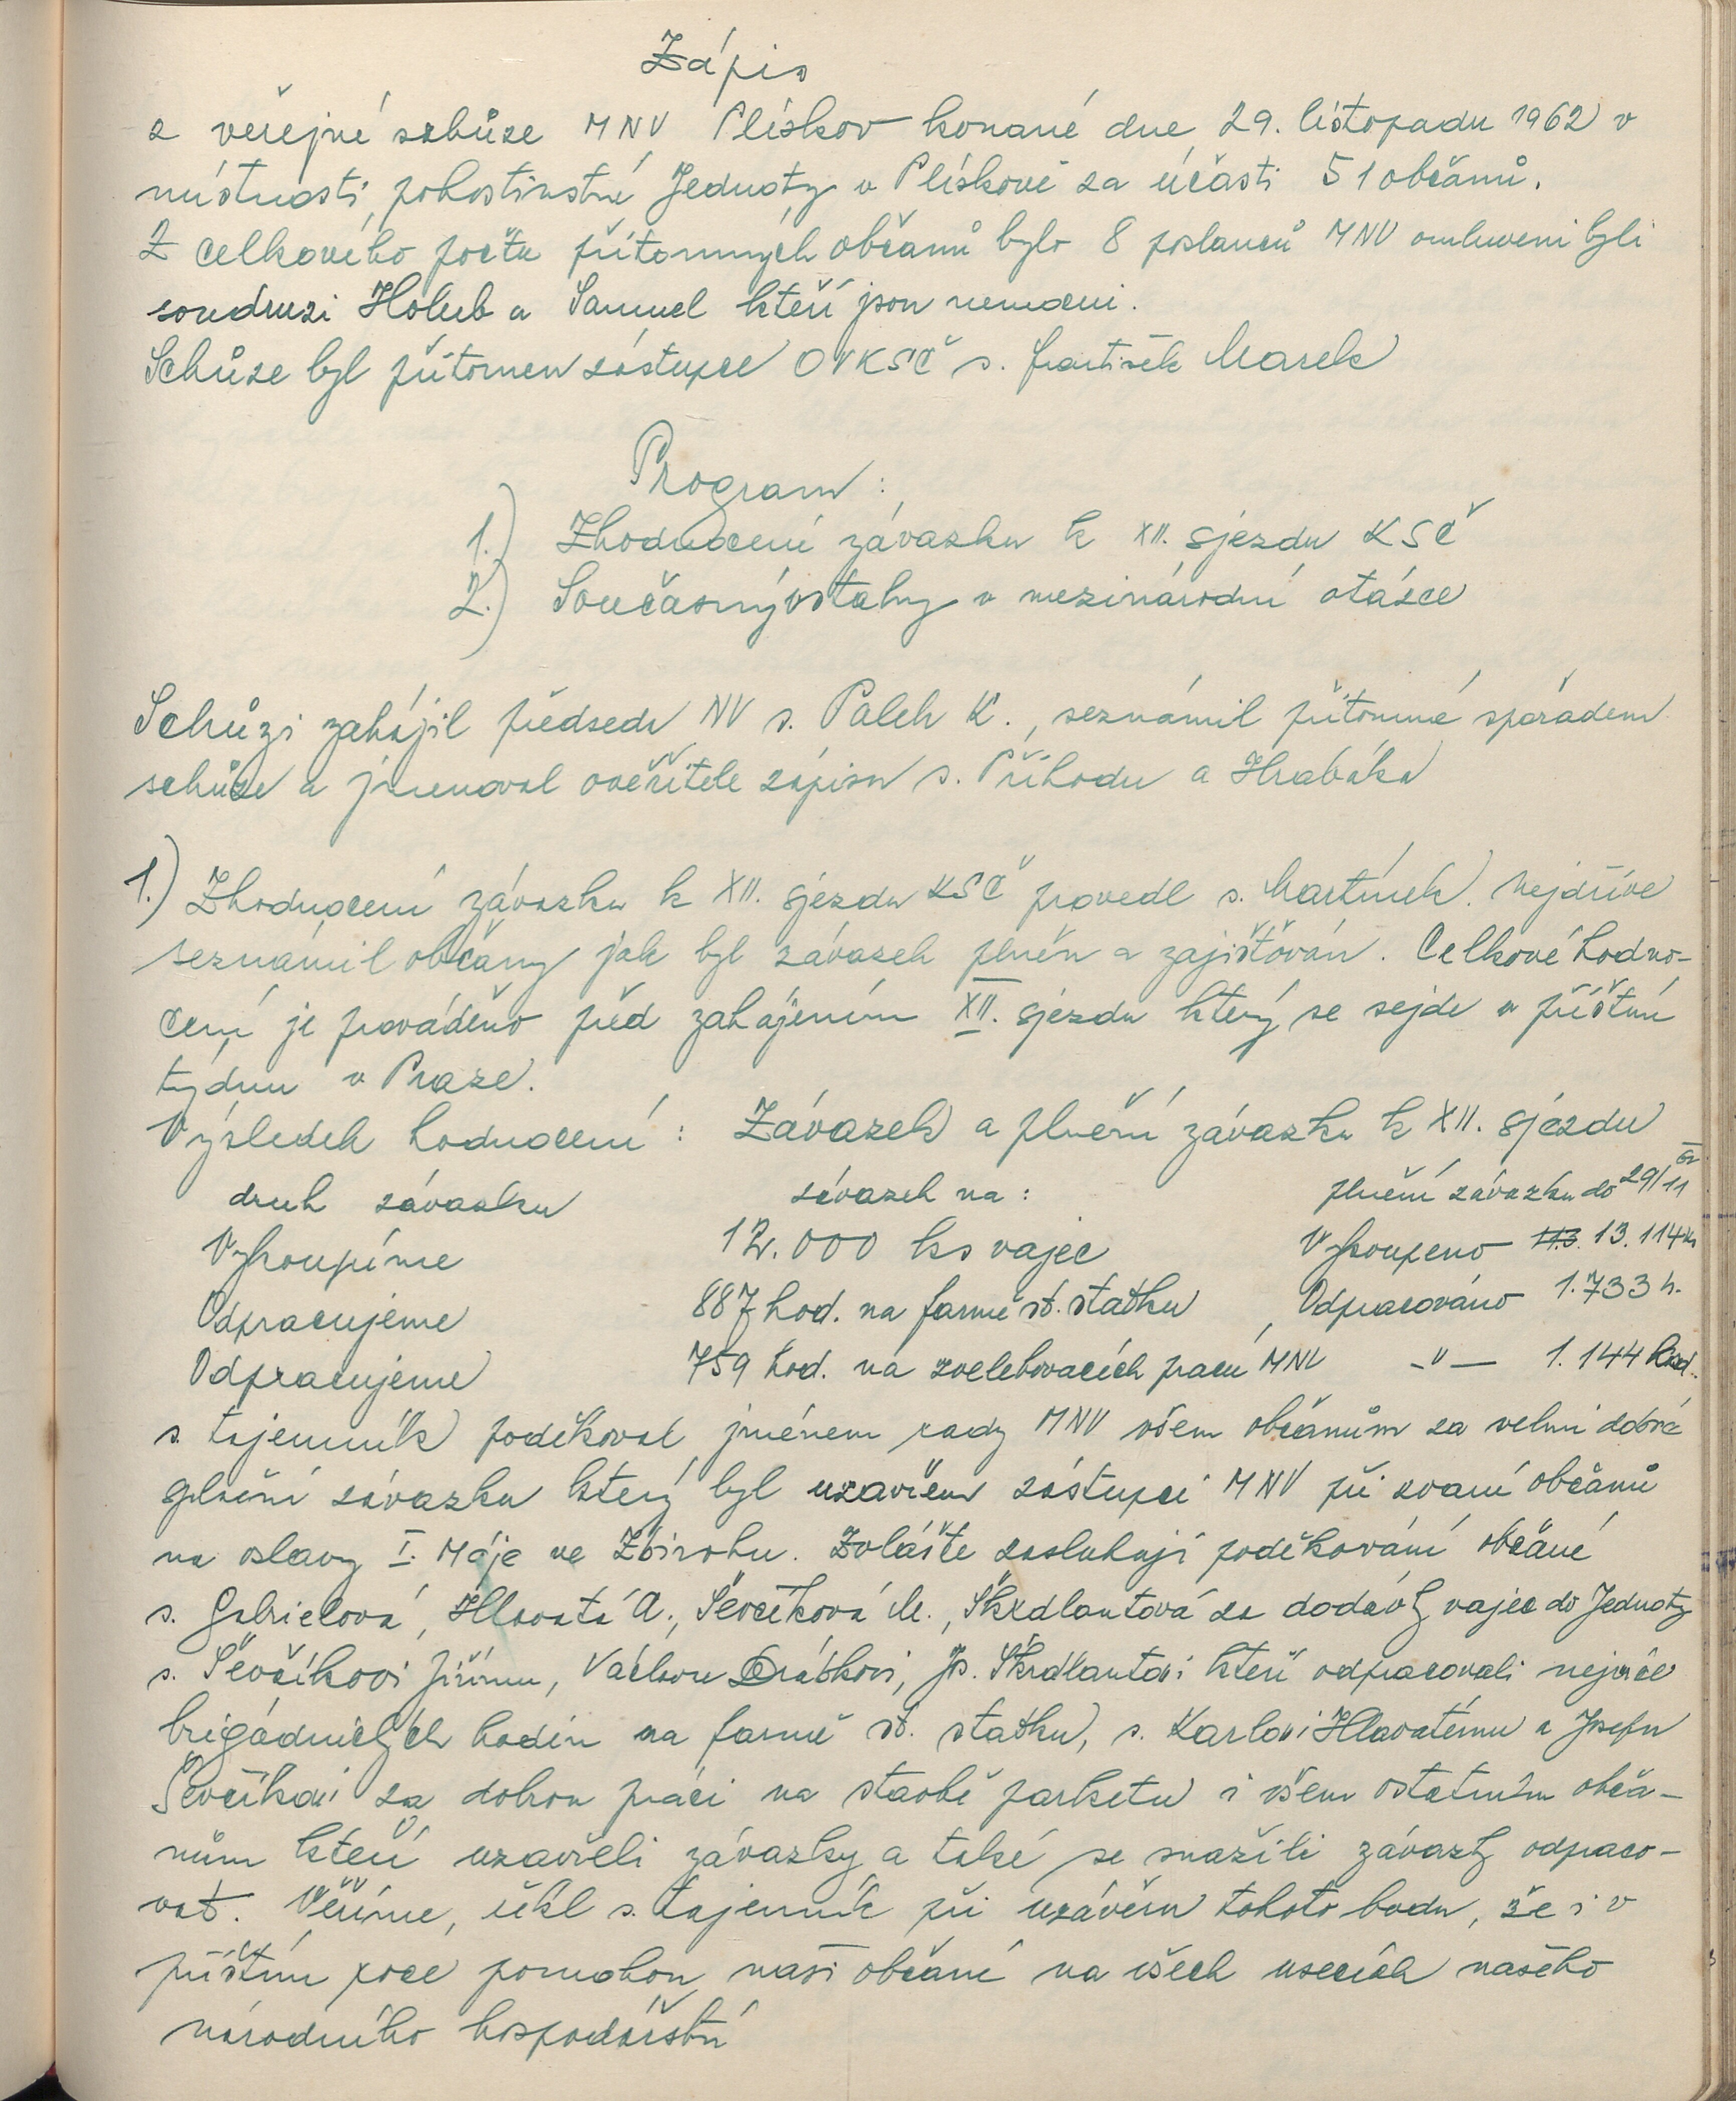 Zápis
z veřejné schůze MNV Plískov konané dne 29. listopadu 1962 v
místnosti pohostinství Jednoty v Plískově za účasti 51 občanů.
Z celkového počtu přítomných občanů bylo 8 poslanců MNV omluveni byli
soudruzi Holub a Samuel kteří jsou nemocni.
Schůze byl přítomen zástupce OVKSČ s. František Marek
Program:
1.) Zhodnocení závazku k XII. sjezdu KSČ
2.) Současný vztahy v mezinárodní otázce
Schůzi zahájil předseda NV s. Palek K., seznámil přítomné s pořádem
schůze a jmenoval ověřitele zápisu s. Příhodu a Hrabáka
1.) Zhodnocení závazku k XII. sjezdu KSČ provedl s. Martínek. Nejdříve
seznámil občany jak byl závazek plněn a zajišťován. Celkové hodno-
cení je prováděno před zahájením XII. sjezdu který se sejde v příštím
týdnu v Praze.
Výsledek hodnocení: Závazek a plnění závazku k XII. sjezdu
druh závazku závazek na: plnění závazku do 29/11
Vykoupíme 12.000 ks vajec Vykoupeno 13.114 ks
Odpracujeme 887 hod. na farmě st. statku, Odpracováno 1.733 h.
Odpracujeme 759 hod. na zvelebovacích prací MNV -"- 1.144 hod.
s. tajemník poděkoval jménem rady MNV všem občanům za velmi dobré
splnění závazku který byl uzavřen zástupci MNV při zvaní občanů
na oslavy I. Máje ve Zbirohu. Zvláště zasluhují poděkování občané
s. Gabrielová, Hlavatá A., Ševčíková M., Škrdlantová za dodávky vajec do Jednoty
s. Ševčíkovi Jiřímu, Václavu Drábkovi, Js. Škrdlantovi kteří odpracovali nejvíce
brigádnických hodin na farmě st. statku, s. Karlovi Hlavatému a Josefu
Ševčíkovi za dobrou práci na stavbě parketu i všem ostatním obča-
nům kteří uzavřeli závazky a také se snažili závazky odpraco-
vat. Věříme, řekl s. tajemník při uzávěru tohoto bodu, že i v
příštím roce pomohou naši občané na všech usecích našeho
národního hospodářství